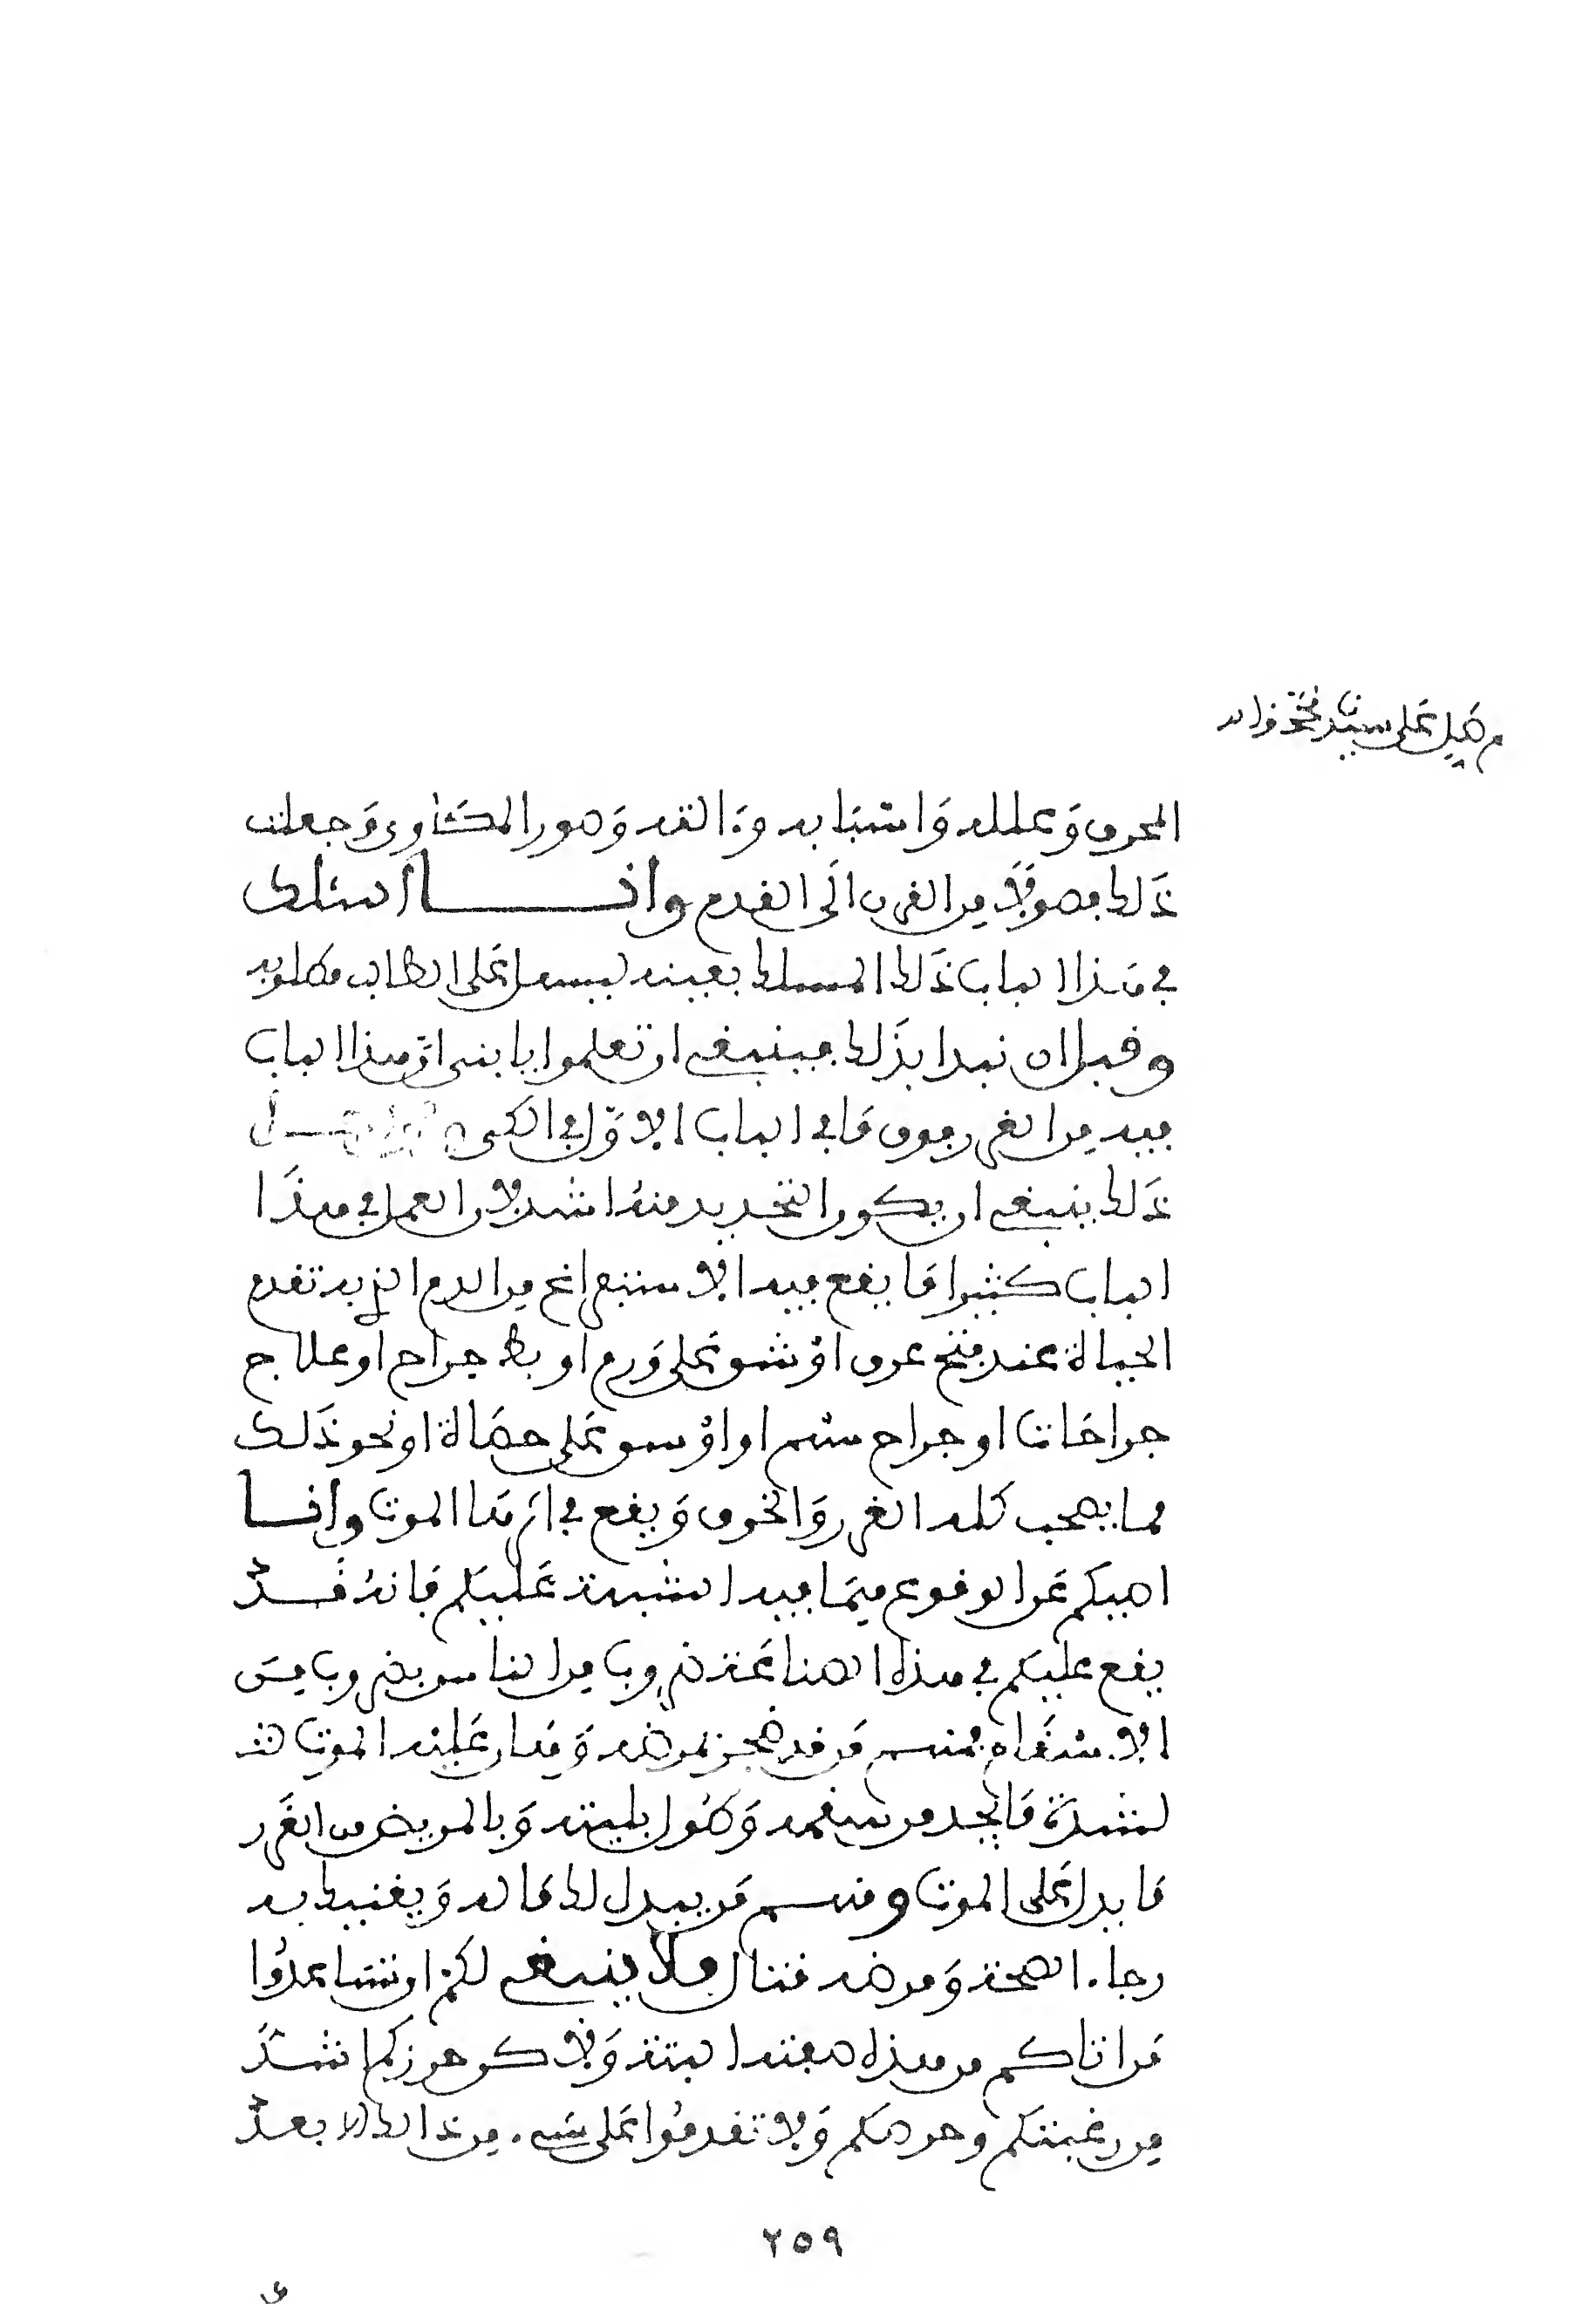 صل على سيدنا محمد واله
المحرق وعلله واسبابه وءالته وصور المكاوى وجعلت
ذلك فصولا من الفرن الى القدم وانا اسلك
في هذا الباب ذلك المسلك بعينه ليسهل على الطالب مطلوبه
وقبل ان نبدا بذلك فينبغى ان تعلموا يا بنى ان هذا الباب
فيه من الغرر فوق ما في الباب الاول في الكى
ذلك ينبغى ان يكون التحذير منه اشد لان العمل في هذا
الباب كثيرا ما يقع فيه الاستفراغ من الدم الذي به تقوم
الحياة عند فتح عرق او شق على ورم او بط جراح او علاج
جراحات او خراج سهم او شق على حصاة او نحو ذلك
مما يصحب كله الغرر والخوف ويقع في اكثرها الموت وانا
اوصيكم عن الوقوع فيما فيه الشبهة عليكم فانه قد
يقع عليكم في هذه الصناعة ضروب من الناس بضروب من
الاسقام فمنهم من قد ضجر بمرضه وهان عليه الموت
لشدة ما يجد من سقمه وطول بليته وبالمريض من الغرر
ما يدل على الموت ومنهم من يبدل لك ماله ويغنيك به
رجاء الصحة ومرضه قتال فلا ينبغى لكم ان تساعدوا
من اتاكم من هذه صفته البتة ولاكن حرزكم اشد
من رغبتكم وحرصكم ولا تقدموا على شىء من ذالك الا بعد
٢٥٩